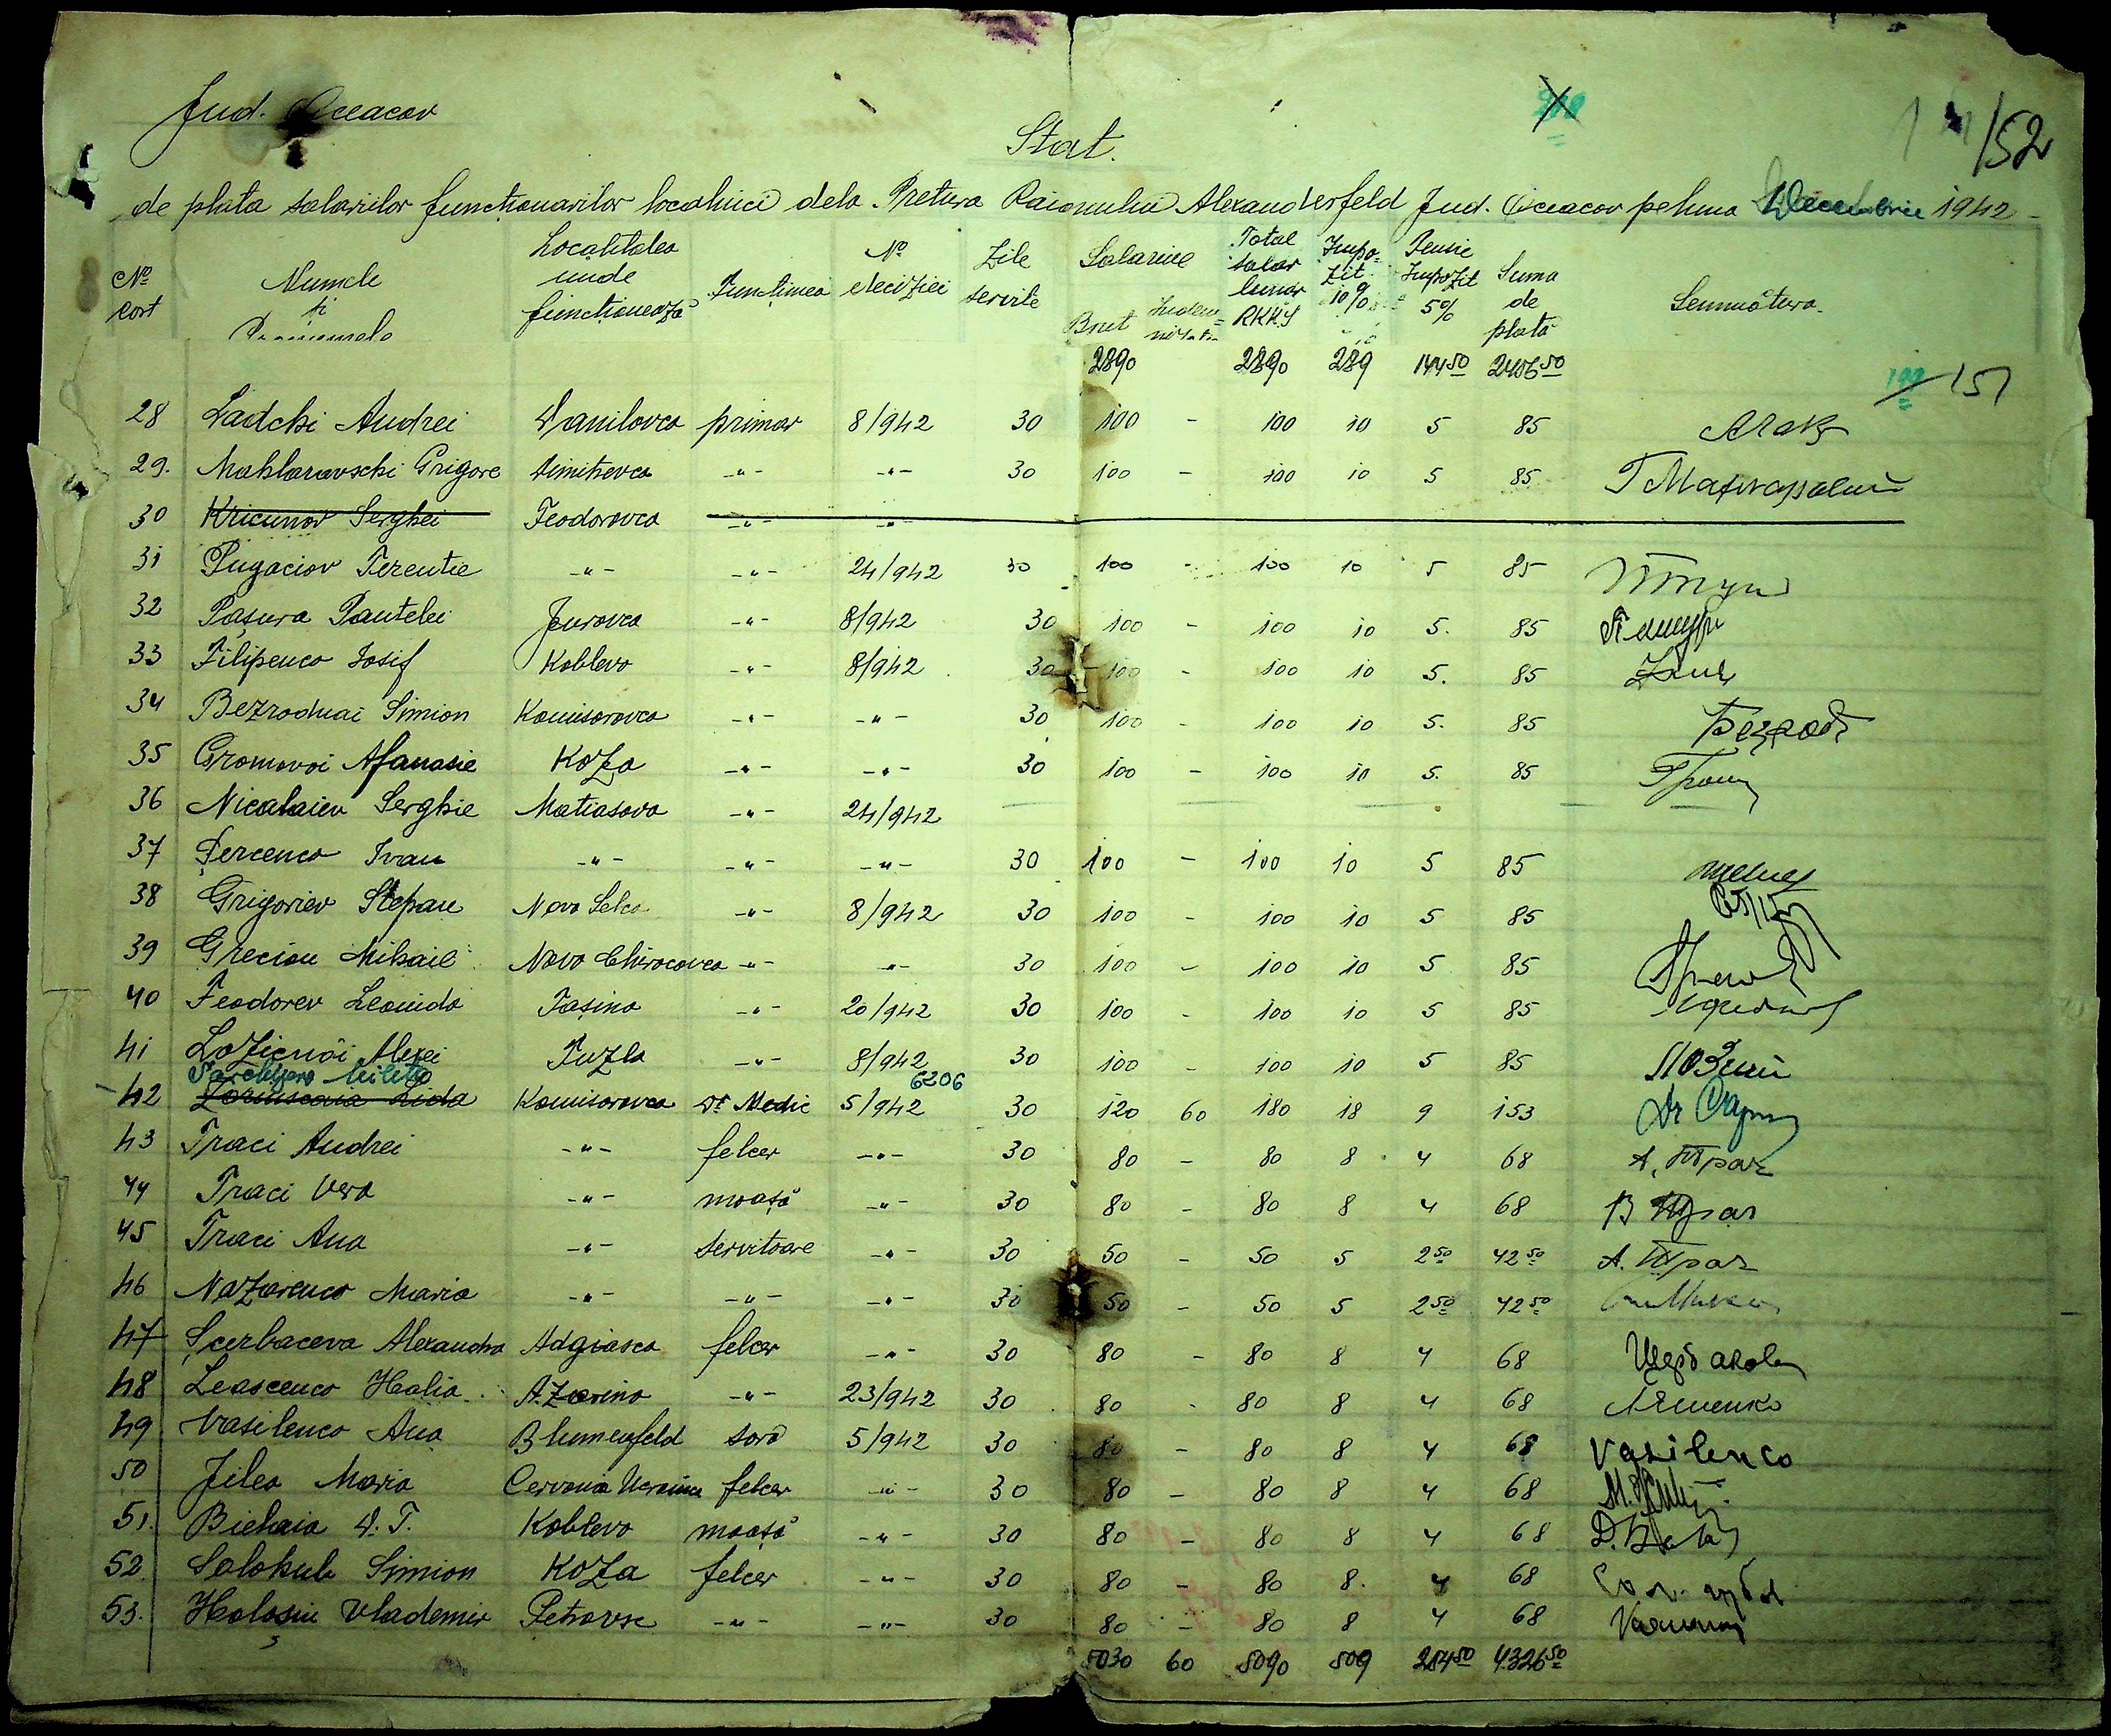 Jud. Oceacov
Stat.
152
de plata salariilor funcționarilor localnici dela Pretura Raionului Alexanderfeld Jud. Oceacov pe luna Decembrie 1942
No cort Numele și Pronumele Localitatea unde funcționează Funcțiunea No deciziei Zile servite Salariul Brut Indemnizatia Total salar lunar RKKS Impozit 10% Pensie Impozit 5% Suma de plată Semnătura
2890 2890 289 144 50 2456 50
151
28 Ladchi Andrei Danilovca primar 8/942 30 100 - 100 10 5 85
29. Mahlaravschi Grigore Dimitrovca -"- -"- 30 100 - 100 10 5 85
30 Kricunov Serghei Feodorovca -"- -"-
31 Pugaciov Terentie -"- -"- 24/942 30 100 - 100 10 5 85
32 Pașura Pantelei Jurovca -"- 8/942 30 100 - 100 10 5. 85
33 Filipenco Iosif Koblevo -"- 8/942 30 100 - 100 10 5. 85
34 Bezrodnai Simion Komisarovca -"- -"- 30 100 - 100 10 5. 85 Безрод
35 Gromovoi Afanasie Koza -"- -"- 30 100 - 100 10 5. 85 Гром
36 Nicalaiev Serghie Matiasovo -"- 24/942
37 Șercenco Ivan -"- -"- -"- 30 100 - 100 10 5 85
38 Grigoriev Stepan Novo Selca -"- 8/942 30 100 - 100 10 5 85
39 Greciou Mihail Novo Chiracovca -"- -"- 30 100 - 100 10 5 85
40 Feodorev Leonida Tașino -"- 20/942 30 100 - 100 10 5 85
41 Lozicnâi Alexei Tuzla -"- 8/942 30 100 - 100 10 5 85
6206
42 Lida Komisarovca Dr Medic 5/942 30 120 60 180 18 9 153 Dr
43 Traci Andrei -"- felcer -"- 30 80 - 80 8 4 68 А. Трач
44 Traci Vera -"- moașă -"- 30 80 - 80 8 4 68 В Трач
45 Traci Ana -"- servitoare -"- 30 50 - 50 5 2 50 42 50 А. Трач
46 Nazarenco Maria -"- -"- -"- 30 50 - 50 5 2 50 42 50
47 Șcerbaceva Alexandra Adgiasca felcer -"- 30 80 - 80 8 4 68
48 Leascenco Halia A.Zarino -"- 23/942 30 80 - 80 8 4 68
49 Vasilenco Ana Blumenfeld soră 5/942 30 80 - 80 8 4 68 Vasilenco
50 Jilea Maria Cervonia Ucraina felcer -"- 30 80 - 80 8 4 68
51. Biehaia D.T. Koblevo moașă -"- 30 80 - 80 8 4 68
52. Solohub Simion Koza felcer -"- 30 80 - 80 8. 4 68
53. Holoșin Vlademir Petrovsc -"- -"- 30 80 - 80 8 4 68
5030 60 5090 509 254 50 4326 50